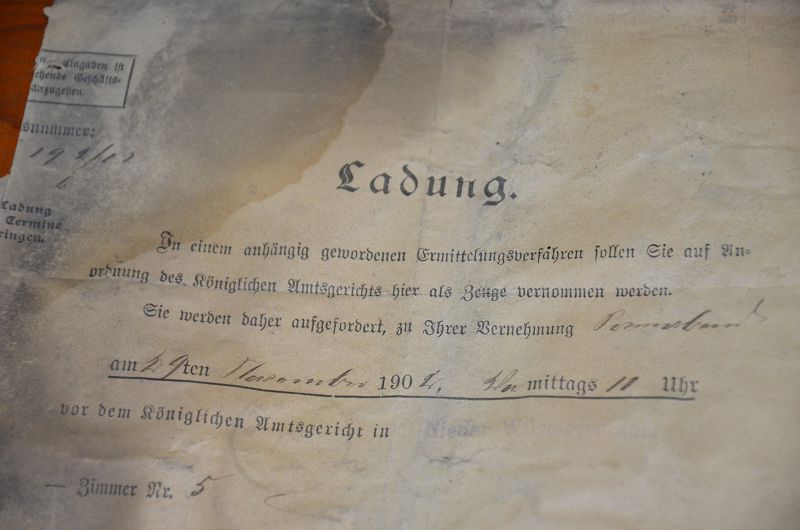 Eingaben ist
ehende Geschäfts-
anzugeben.
snummer:
Ladung
Termine
ringen.
Ladung.
In einem anhängig gewordenen Ermittelungsverfahren sollen Sie auf An-
ordnung des Königlichen Amtsgerichts hier als Zeuge vernommen werden.
Sie werden daher aufgefordert, zu Ihrer Vernehmung Sonnabend
am 29ten November 1902. Vormittags 10 Uhr
vor dem Königlichen Amtsgericht in Nieder
— Zimmer Nr. 5